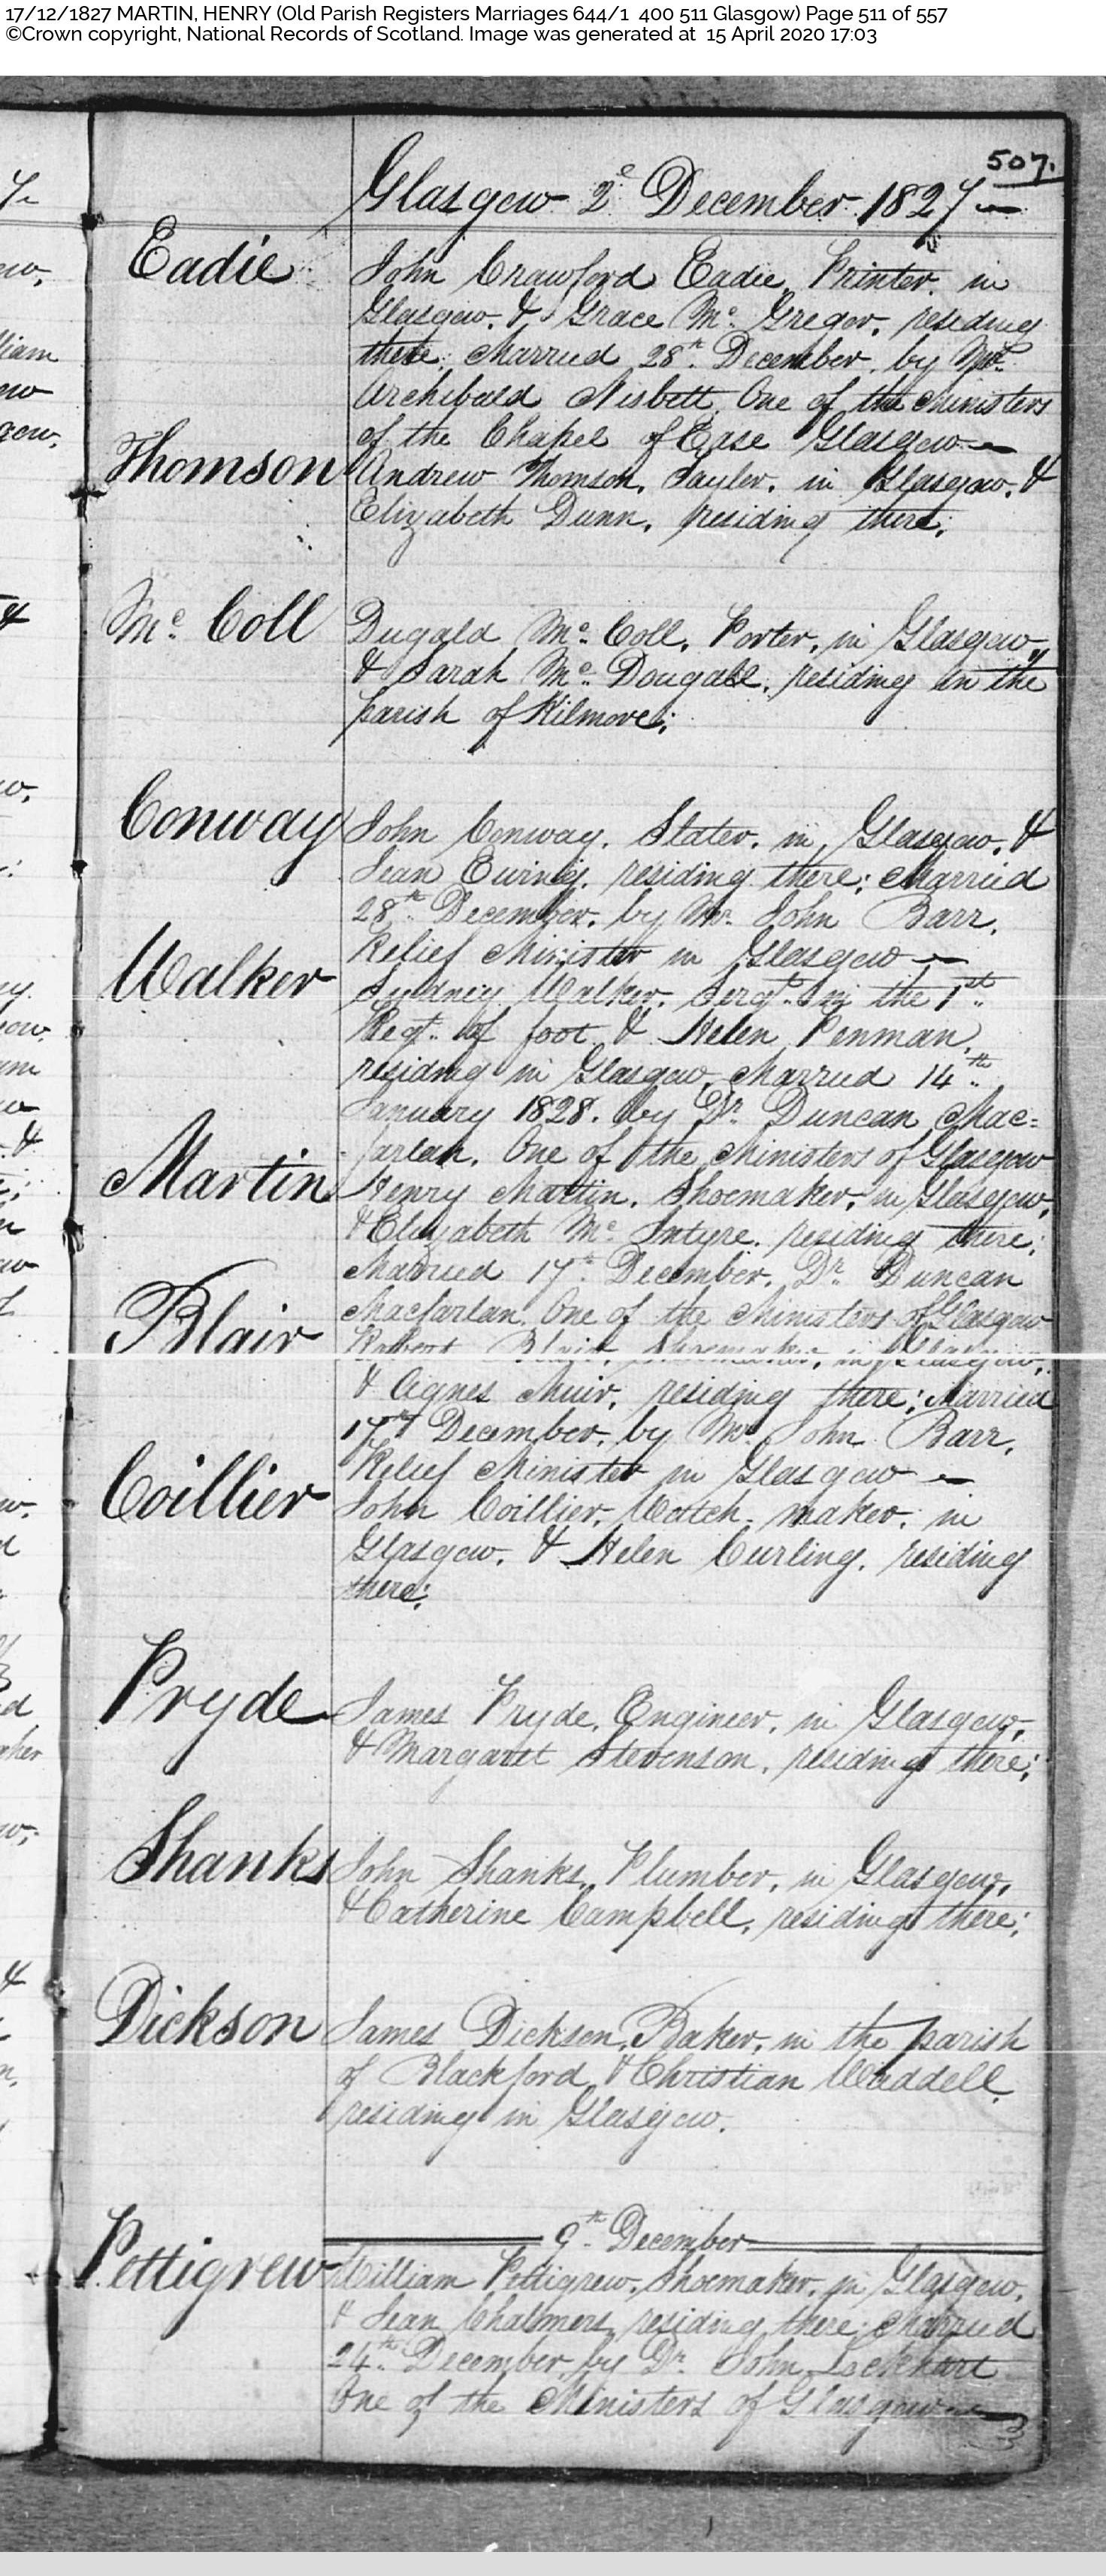 17/12/1827 MARTIN, HENRY (Old Parish Registers Marriages 644/1 400 511 Glasgow) Page 511 of 557
©Crown copyright, National Records of Scotland. Image was generated at 15 April 2020 17:03
507.
Glasgow 2d December 1827
Eadie
John Crawford Eadie, Printer, in
Glasgow, & Grace Mc Gregor, residing
there; Married 28th December, by Mr
Archibald Nisbett, One of the Ministers
of the Chapel of Ease Glasgow
Thomson
Andrew Thomson, Taylor, in Glasgow, &
Elizabeth Dunn, residing there;
Mc Coll
Dugald Mc Coll, Porter, in Glasgow,
& Sarah Mc Dougall, residing in the
parish of Kilmore;
Conway
John Conway, Slater, in Glasgow, &
Jean Ewing, residing there; Married
28th December, by Mr John Barr,
Relief Minister in Glasgow
Walker
Sydney Walker, Sergt in the 1st
Regt of foot & Helen Penman,
residing in Glasgow, Married 14th
January 1828. by Dr Duncan Mac=
farlan, One of the Ministers of Glasgow
Martin
Henry Martin, Shoemaker, in Glasgow,
& Elizabeth Mc Intyre, residing there;
Married 17th December, Dr Duncan
Macfarlan, One of the Ministers of Glasgow
Blair
Robert Blair, Shoemaker, in Glasgow,
& Agnes Muir, residing there; Married
17th December, by Mr John Barr,
Relief Minister in Glasgow
Coillier
John Coillier, Watch-maker, in
Glasgow, & Helen Curling, residing
there;
Pryde
James Pryde, Engineer, in Glasgow,
& Margaret Stevenson, residing there;
Shanks
John Shanks, Plumber, in Glasgow,
& Catherine Campbell, residing there;
Dickson
James Dickson, Baker, in the parish
of Blackford, & Christian Waddell,
residing in Glasgow.
9th December
Pettigrew
William Pettigrew, Shoemaker, in Glasgow,
& Jean Chalmers, residing there; Married
24th December, by Dr John Lockhart
One of the Ministers of Glasgow